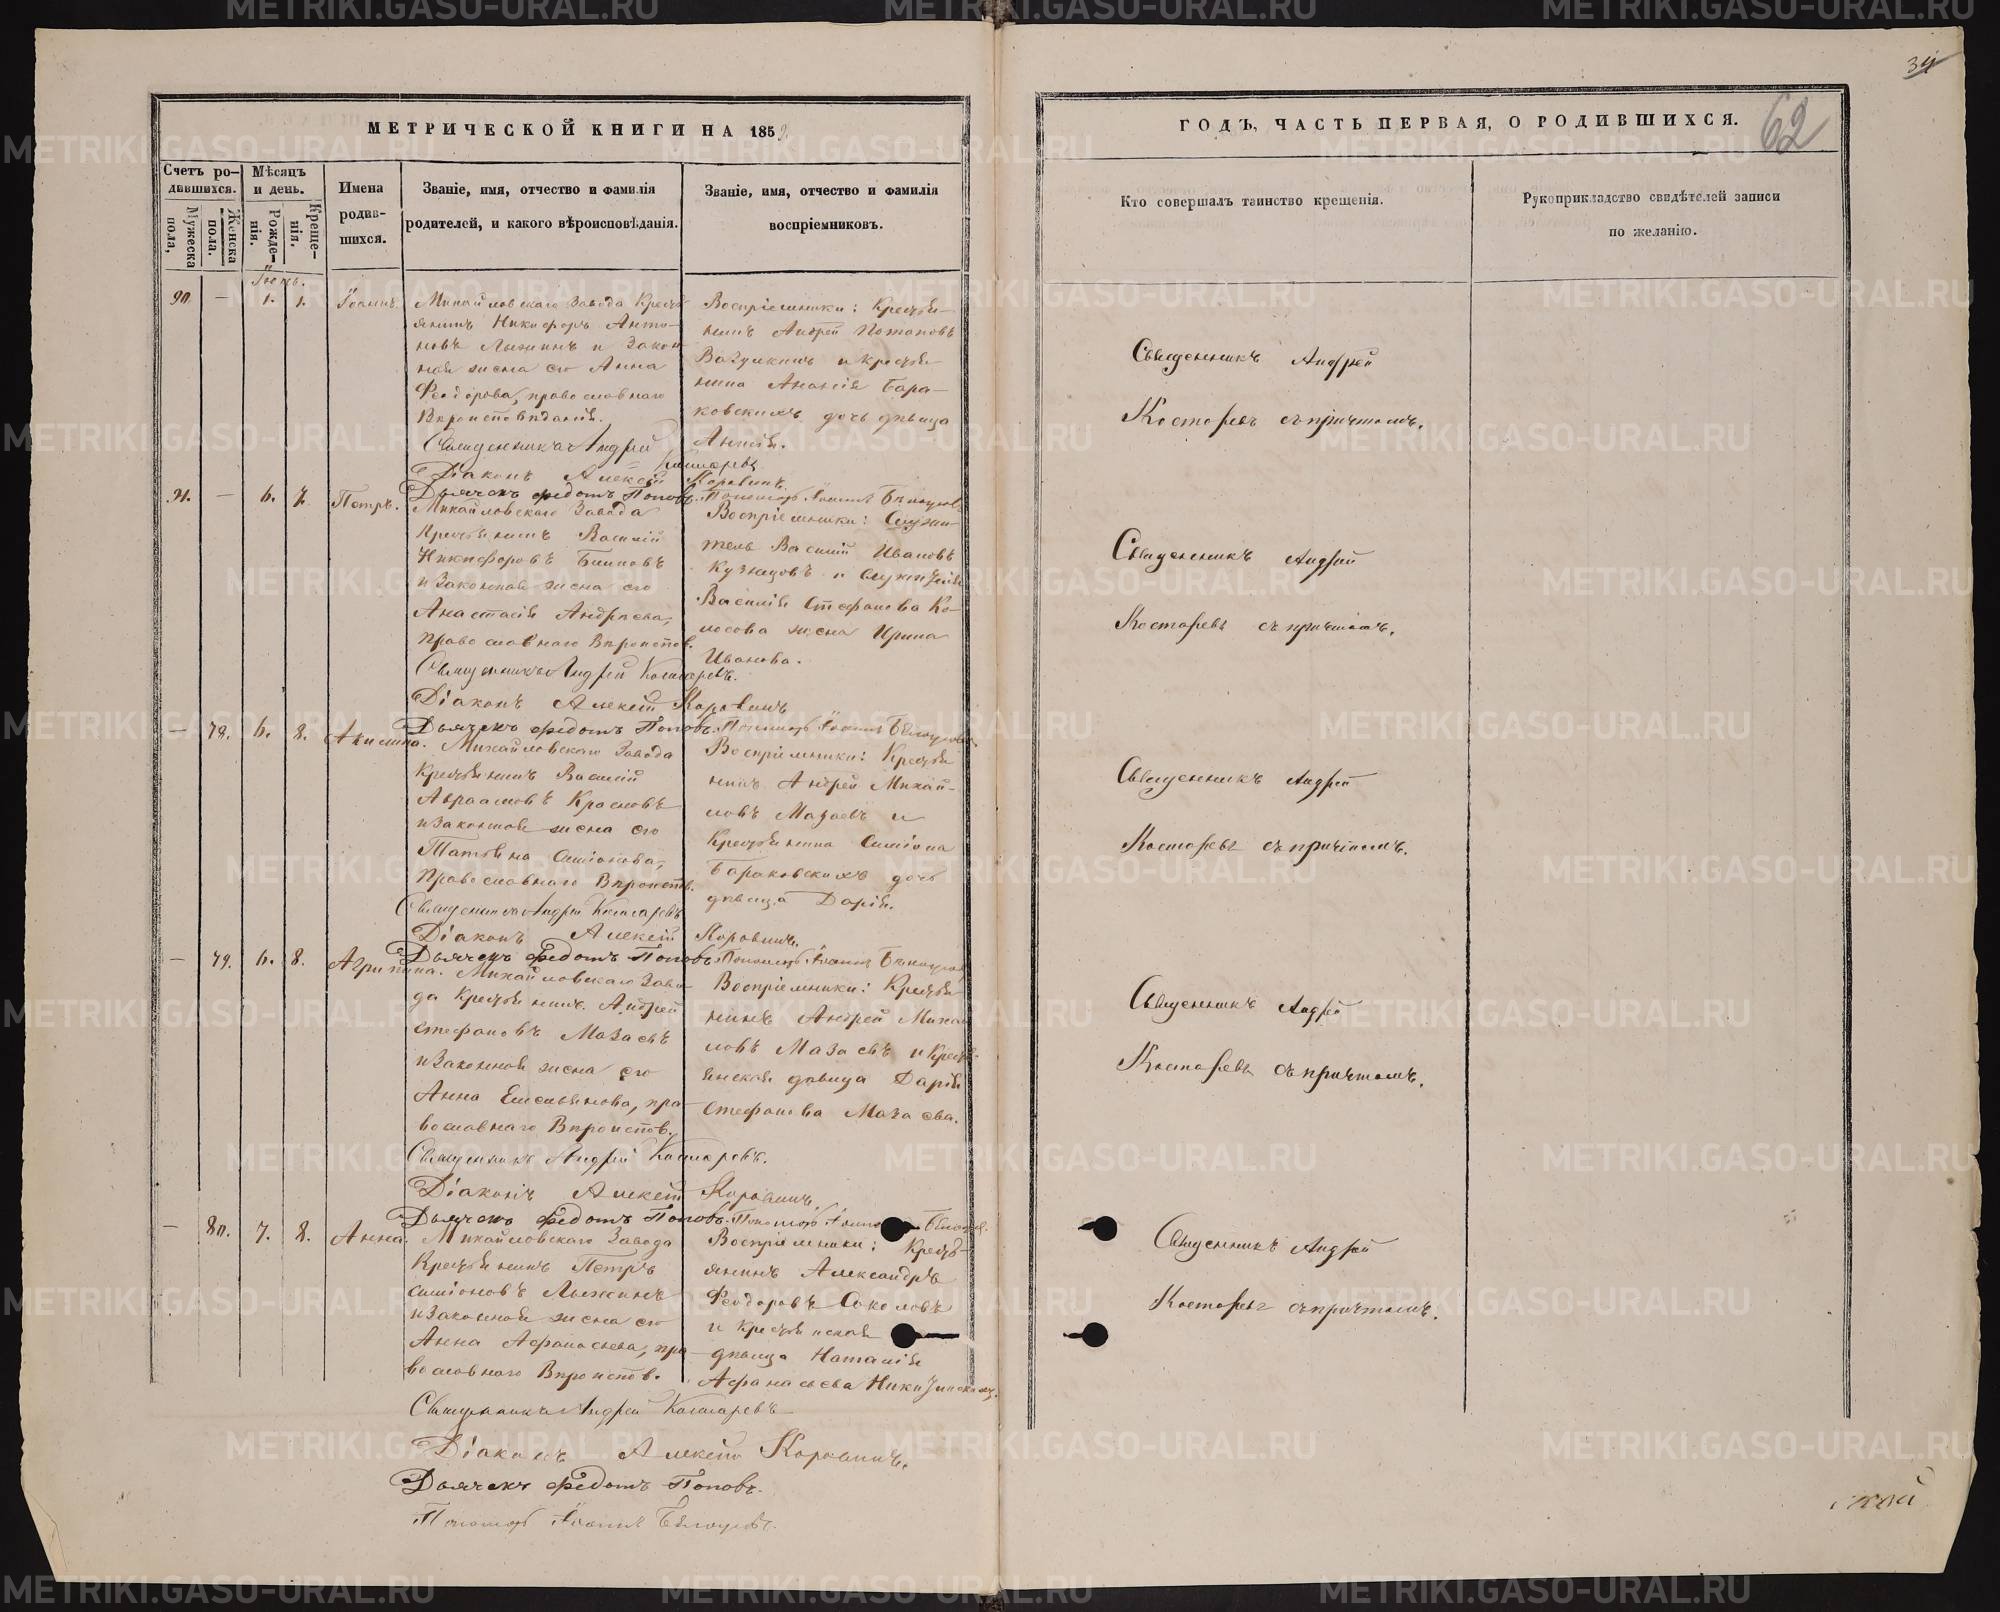 МЕТРИЧЕСКОЙ КНИГИ НА 1852
Счетъ ро-
дившихся.
Мѣсяцъ
и день.
Имена
родив-
шихся.
Званіе, имя, отчество и фамилія
родителей, и какого вѣроисповѣданія.
Званіе, имя, отчество и фамилія
воспріемниковъ.
Мужеска
пола,
Женска
пола.
Рожде-
нія.
Креще-
нія.
Іюнь.
90 — 1. 1. Іоаннъ.
Михайловскаго Завода Кресть
янинъ Никифоръ Анто-
новъ Лыжинъ и Закон
ная жена его Анна
Феодорова, православнаго
Вѣроисповѣданія.
Воспріемники: Крестья-
нинъ Андрей Потаповъ
и крестья
нина Ананія Бара-
ковскихъ дочь дѣвица
Священникъ Андрей Костаревъ
Діаконъ Алексѣй Коровинъ.
Дьячекъ Федотъ Поповъ. Пономарь Іоаннъ
91. — 6. 7. Петръ.
Михайловскаго Завода
Крестьянинъ Василій
Никифоровъ Блиновъ
и Законная жена его
Анастасія Андреева,
православнаго Вѣроиспов.
Воспріемники: Служи-
тель Василій Ивановъ
Кузнецовъ и служителя
Василія Стефанова Ко-
лосова жена Ирина
Иванова.
Священникъ Андрей Костаревъ.
Діаконъ Алексѣй Коровинъ
Дьячекъ Федотъ Поповъ. Пономарь Іоаннъ
— 78. 6. 8. Акилина.
Михайловскаго Завода
Крестьянинъ Василій
Авраамовъ Красновъ
и Законная жена его
Татьяна Симіонова,
Православнаго Вѣроиспов.
Воспріемники: Крестья
нинъ Андрей Михай-
ловъ Мазаевъ и
Крестьянина Симіона
Бараковскихъ дочь
дѣвица Дарія.
Священникъ Андрей Костаревъ
Діаконъ Алексѣй Коровинъ.
Дьячекъ Федотъ Поповъ. Пономарь Іоаннъ
— 79. 6. 8. Агрипина.
Михайловскаго Заво-
да Крестьянинъ Андрей
Стефановъ Мазаевъ
и Законная жена его
Анна Емельянова, пра-
вославнаго Вѣроиспов.
Воспріемники: Крестья
нинъ Андрей Михай
ловъ Мазаевъ и Кресть-
янская дѣвица Дарія
Стефанова Мазаева.
Священникъ Андрей Костаревъ.
Діаконъ Алексѣй Коровинъ.
Дьячекъ Федотъ Поповъ. Пономарь
— 80. 7. 8. Анна.
Михайловскаго Завода
Крестьянинъ Петръ
Симіоновъ Лыжинъ
и Законная жена его
Анна Афанасьева, пра-
вославнаго Вѣроиспов.
Воспріемники: Кресть-
янинъ Александръ
Феодоровъ Соколовъ
и Крестьянская
дѣвица Наталія
Афанасьева
Священникъ Андрей Костаревъ
Діаконъ Алексѣй Коровинъ.
Дьячекъ Федотъ Поповъ.
Пономарь Іоаннъ
34
62
ГОДЪ, ЧАСТЬ ПЕРВАЯ, О РОДИВШИХСЯ.
Кто совершалъ таинство крещенія.
Рукоприкладство свидѣтелей записи
по желанію.
Священникъ Андрей
Костаревъ съ причтомъ.
Священникъ Андрей
Костаревъ съ причтомъ.
Священникъ Андрей
Костаревъ съ причтомъ.
Священникъ Андрей
Костаревъ съ причтомъ.
Священникъ Андрей
Костаревъ съ причтомъ.
METRIKI.GASO-URAL.RU